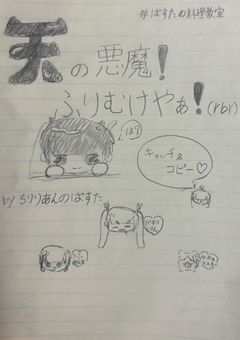 #ぱすたの料理教室
天の悪魔!
ふりむけやぁ!(rbr)
は?
キャッチ&
コピー♡
by ちりりあんのぱすた